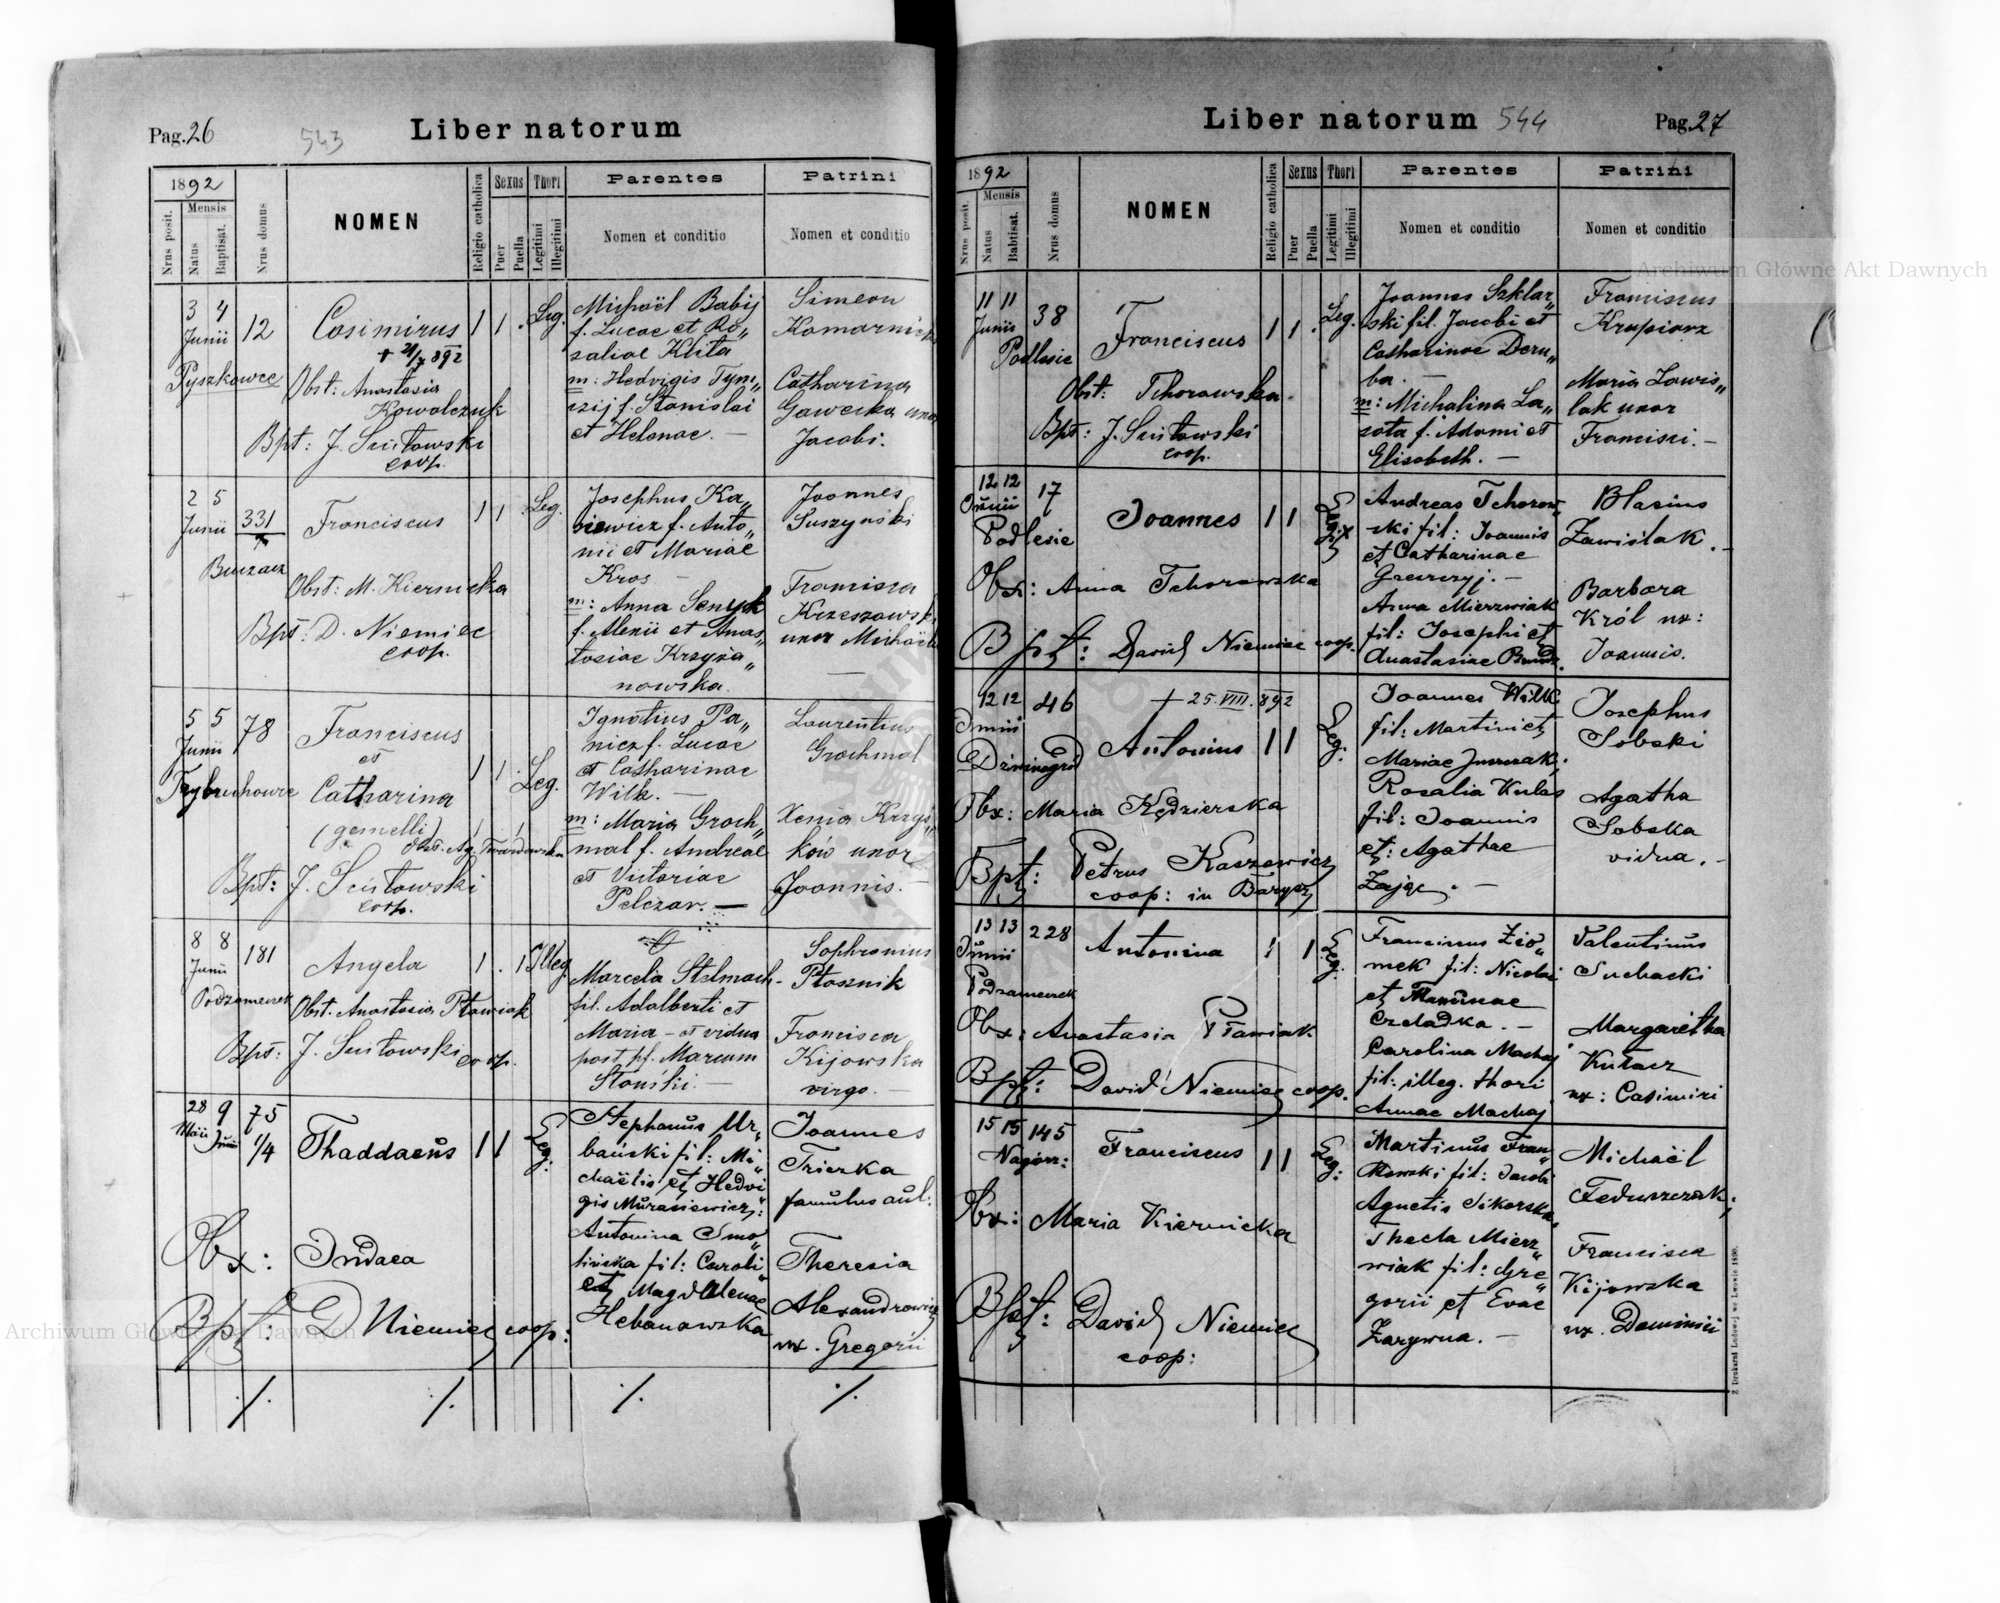 Pag. 26
543
Liber natorum
1892
Nrus posit.
Mensis
Natus
Baptisat.
Nrus domus
NOMEN
Religio catholica
Sexus
Puer
Puella
Thori
Legitimi
Illegitimi
Parentes
Nomen et conditio
Patrini
Nomen et conditio
3 4
Junii
Pyszkowce
12
Casimirus
+ 21/7 892
Obst: Anastasia
Kowalczuk
Bpt: J. Scisłowski
coop.
1 1 . Leg.
Michaël Babij
f. Lucae et Ro„
saliae Klita
m: Hedvigis Tym„
czij f. Stanislai
et Helenae. —
Simeon
Catharina
Gawecka uxor
Jacobi.
2 5
Junii
331
Buczacz
Franciscus
Obst: M. Kiernicka
Bpt: D. Niemiec
coop.
1 1 . Leg.
Josephus Ka„
siewicz f. Anto„
nii et Mariae
Kros —
m: Anna Senyk
f. Alexii et Anas„
tasiae Krzyża„
nowska.
Joannes
Suszyński
Francisca
uxor Michaëlis
—
5 5
Junii
Trybuchowce
78
Franciscus
et
Catharina
(gemelli)
Obst. Ag. Twardowska
Bpt: J. Scisłowski
coop.
1 1 . Leg.
Ignatius Pa„
nicz f. Lucae
et Catharinae
Wilk. —
m: Maria Groch„
mal f. Andreae
et Victoriae
Pelczar. —
Laurentius
Grochmal
Xenia Krzyś„
ków uxor
Joannis. —
8 8
Junii
Podzameczek
181
Angela
Obst. Anastasia Pławiak
Bpt: J. Scisłowski coop.
1 . 1 Illeg.
Marcela Stelmach
fil. Adalberti et
Maria — et vidua
post pf. Marcum
Słoński. —
Sophronius
Ptasznik
Francisca
Kijowska
virgo. —
28 9
Maii Junii
75
1/4
Thaddaeus
Obx: Indaca
Bpt: D Niemiec coop:
1 1 Leg:
Stephanus Ur„
bański fil: Mi„
chaëlis et Hedvi„
gis Murasiewicz:
Antonina Smo„
lińska fil: Caroli
et Magdalenae
Hebanowska
Joannes
Trierka
famulus aul:
Theresia
Alexandrowicz
ux. Gregorii
·/. ·/. ·/. ·/.
Liber natorum
544
Pag. 27
1892
Nrus posit.
Mensis
Natus
Babtisat.
Nrus domus
NOMEN
Religio catholica
Sexus
Puer
Puella
Thori
Legitimi
Illegitimi
Parentes
Nomen et conditio
Patrini
Nomen et conditio
11 11
Junii
Podlesie
38
Franciscus
Obst: Tchorowska
Bpt: J. Scisłowski
coop.
1 1 . Leg.
Joannes Szklar„
ski fil. Jacobi et
Catharinae Deru„
ba. —
m: Michalina La„
sota f. Adami et
Elisabeth. —
Franciscus
Krupiarz
Maria Zawiś„
lak uxor
Francisci. —
12 12
Junii
Podlesie
17
Joannes
Obx: Anna Tchorowska
Bpt: David Niemiec coop.
1 1
Andreas Tchorow„
ski fil: Joannis
et Catharinae
Anna Mierzwiak
fil: Josephi et
Anastasiae
Blasius
Zawiślak. —
Barbara
Król ux:
Joannis.
12 12
Junii
46
+ 25. VIII. 892
Antonius
Obx: Maria Kędzierska
Bpt: Petrus Kaszewicz
coop: in Barysz
1 1 Leg:
Joannes Wilk
fil: Martini et
Mariae
Rosalia Kulas
fil: Joannis
et: Agathae
Zając. —
Josephus
Sobski
Agatha
Sobska
vidua. —
13 13
Junii
Podzameczek
228
Antonina
Obx: Anastasia Pławiak
Bpt: David Niemiec coop.
1 1 Leg:
Franciscus Zio„
mek fil: Nicolai
et
Carolina Machaj
fil: illeg. thori
Annae Machaj
Valentinus
Suchacki
Margaretha
Kutacz
ux: Casimiri
15 15
Nagórz:
145
Franciscus
Obx: Maria Kiernicka
Bpt: David Niemiec
coop:
1 1 Leg:
Martinus Fran„
kowski fil: Jacobi
Agnetis Sikorska
Thecla Mierz„
wiak fil: Gre„
gorii et Evae
Zarywna. —
Michaël
Feduszczak;
Francisca
Kijowska
ux. Dominici
Z Drukarni Ludowej we Lwowie 1890.
Archiwum Główne Akt Dawnych
Archiwum Główne Akt Dawnych